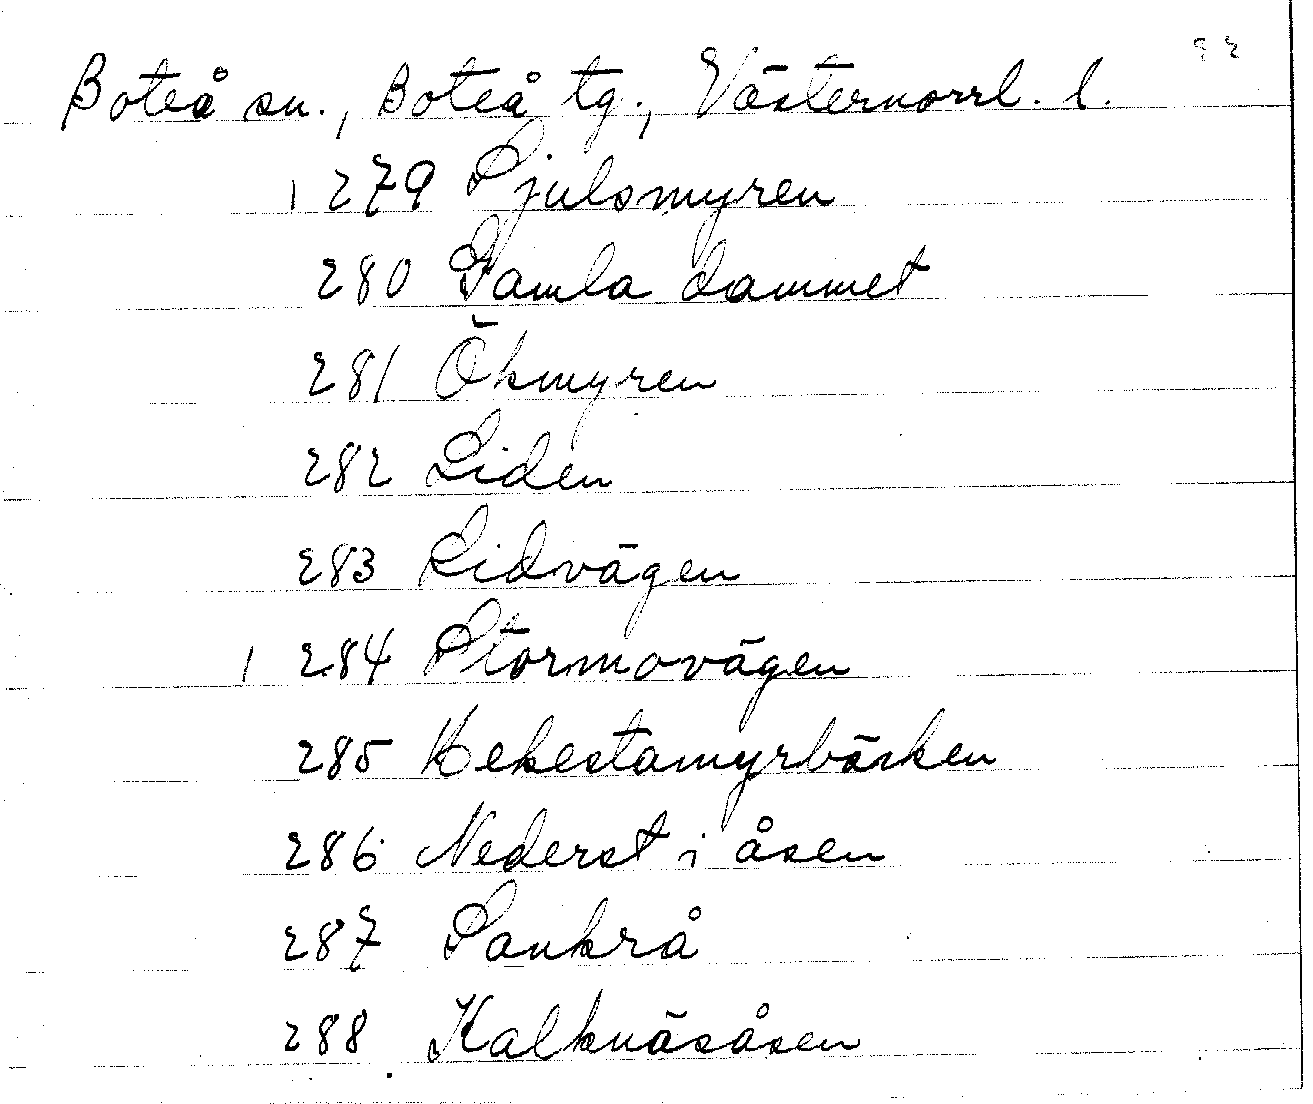 92
Boteå sn., Boteå tg., Västernorrl. l.
1 279 Sjulsmyren
280 Gamla dammet
281 Ökmyren
282 Liden
283 Lidvägen
1 284 Stormovägen
285 Kekestamyrbäcken
286 Nederst i åsen
287 Sankrå
288 Kalknäsåsen